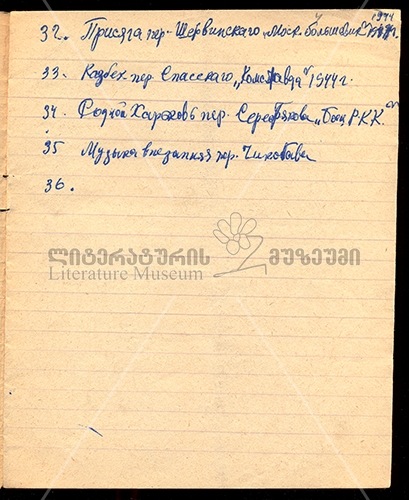 1944
32. Присяга пер. Шервинскаго „Моск. Большевик"
33. Казбек пер. Спасскаго „Комс. Правда" 1944 г.
34. Родной Харьков пер. Серебрякова „Боец РКК"
35 Музыка внезапная пер. Чиковани
36.
ლიტერატურის მუზეუმი
Literature Museum